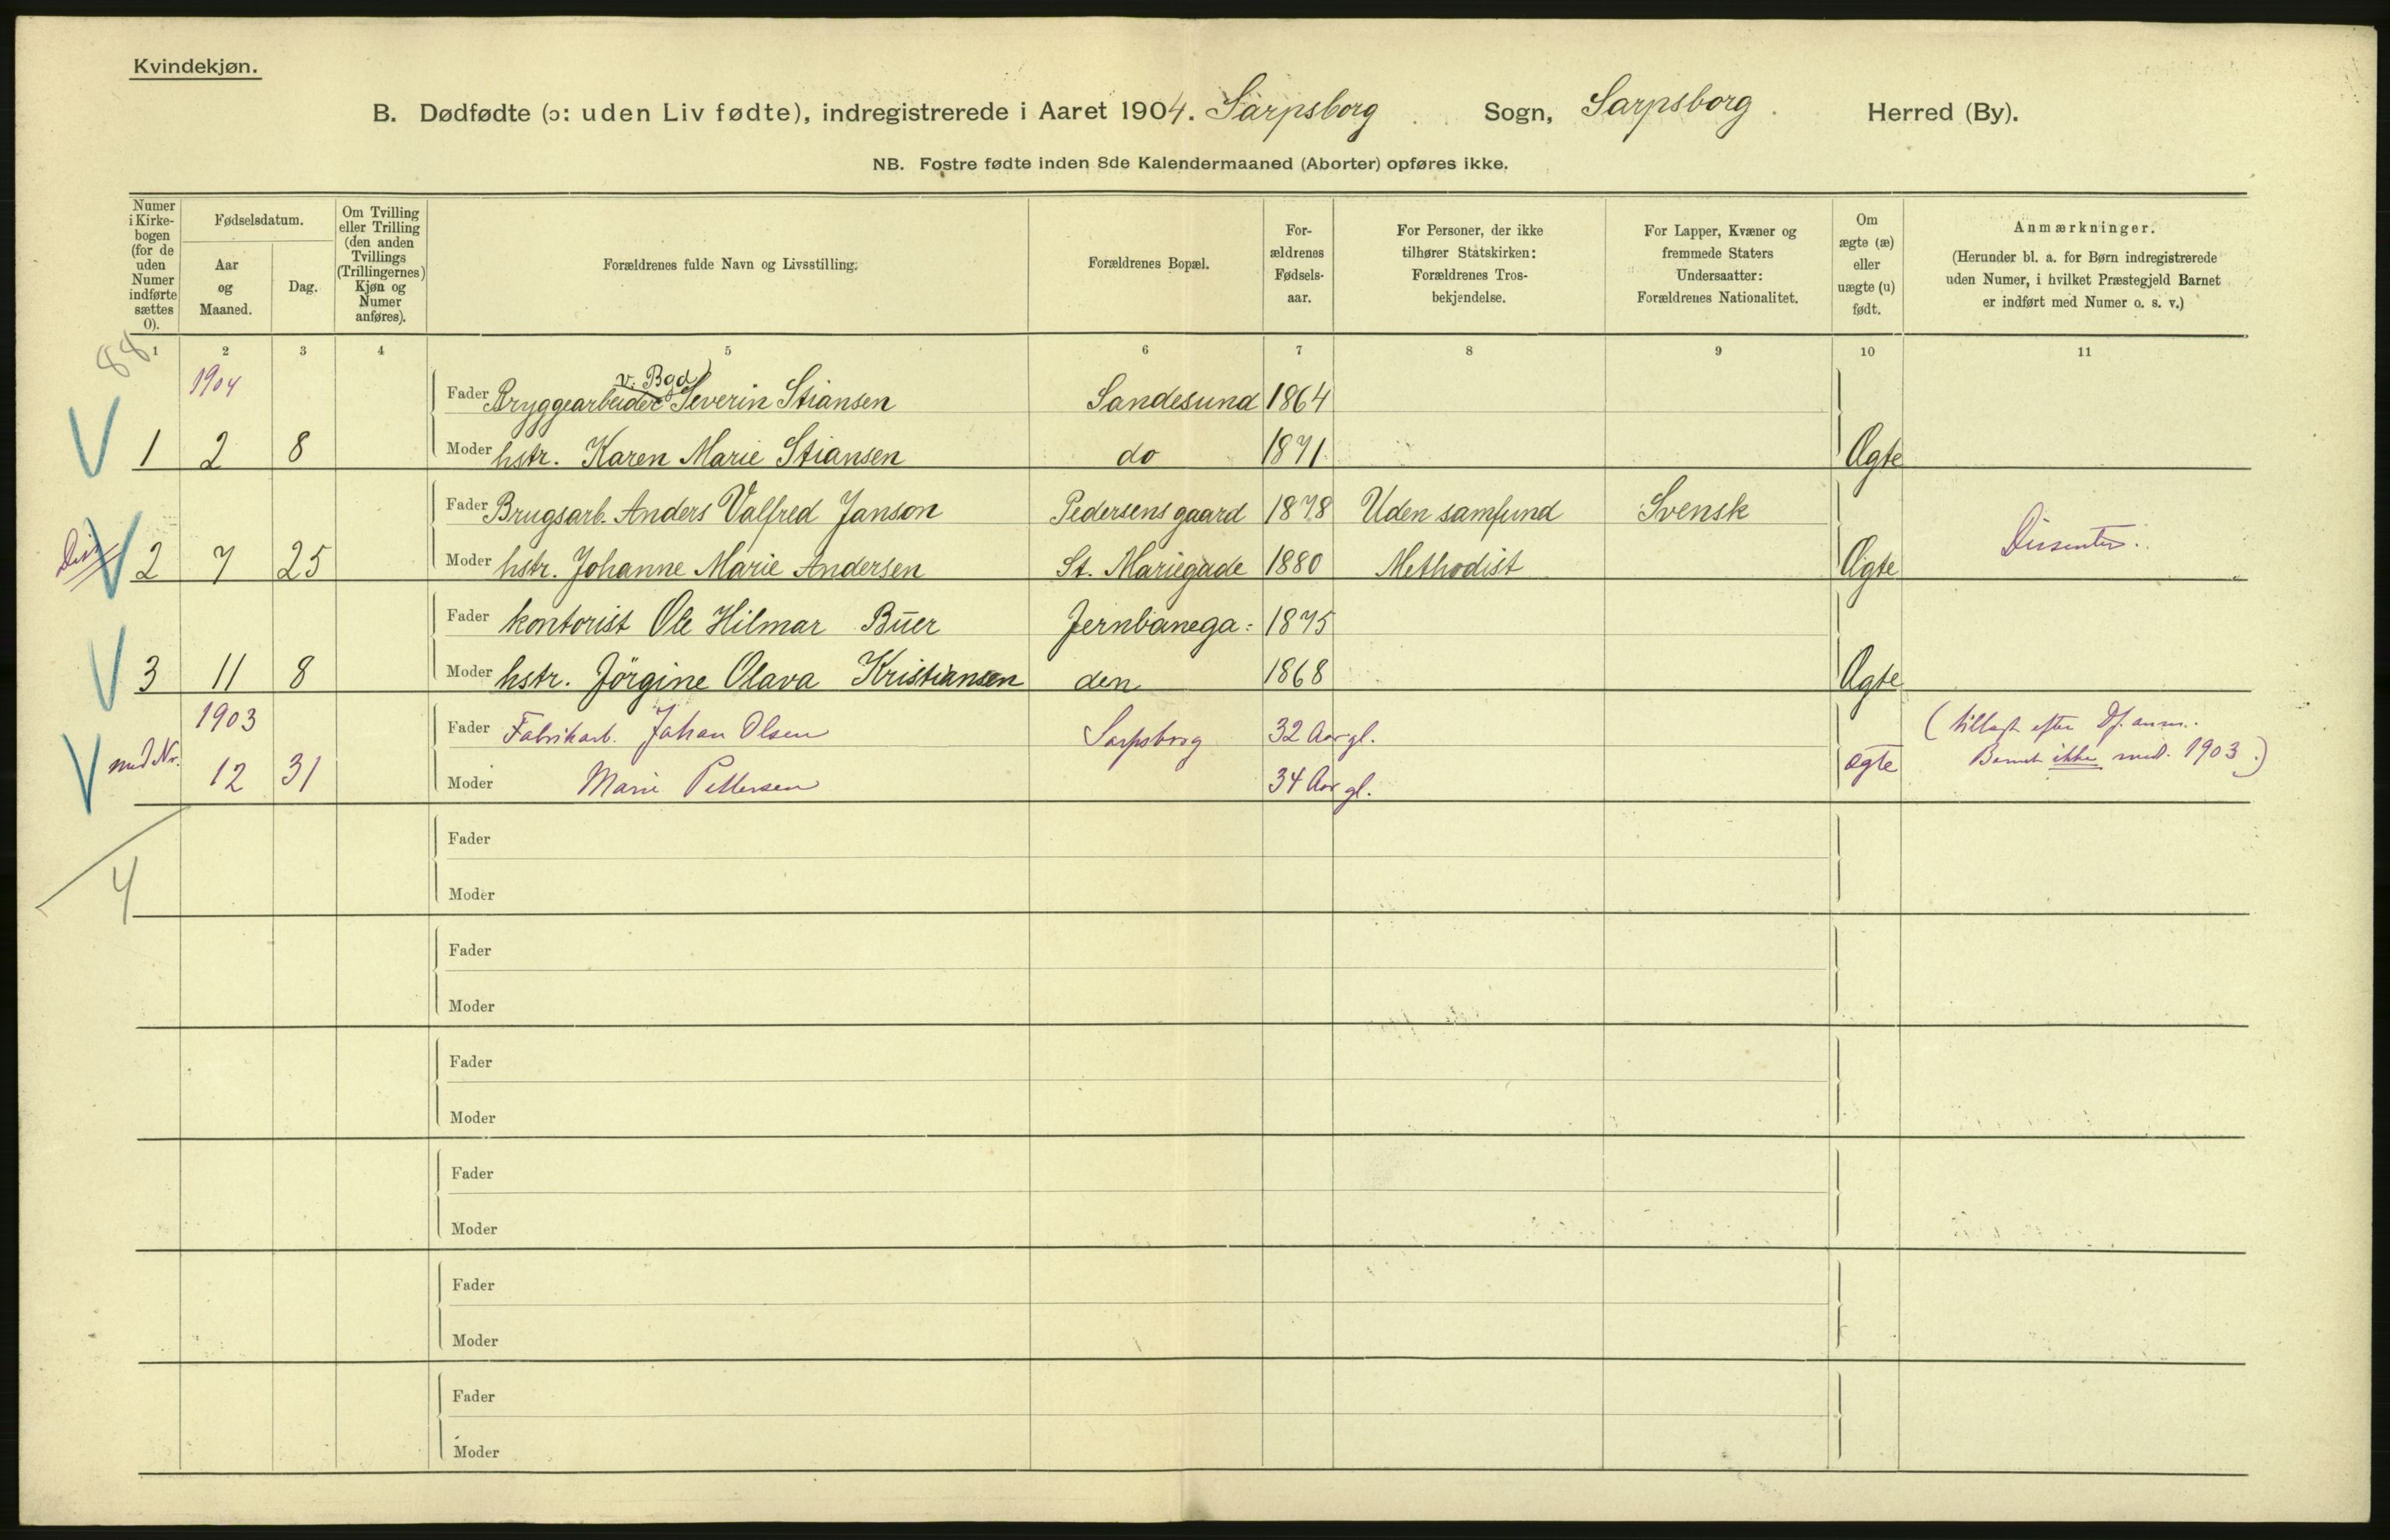 Kvindekjøn.
B. Dødfødte (ɔ: uden Liv fødte), indregistrerede i Aaret 1904. Sarpsborg Sogn, Sarpsborg Herred (By).
NB. Fostre fødte inden 8de Kalendermaaned (Aborter) opføres ikke.
Numer i Kirke-bogen (for de uden Numer indførte sættes 0).
Fødselsdatum.
Aar og Maaned.
Dag.
Om Tvilling eller Trilling (den anden Tvillings (Trillingernes) Kjøn og Numer anføres).
Forældrenes fulde Navn og Livsstilling.
Forældrenes Bopæl.
For-ældrenes Fødsels-aar.
For Personer, der ikke tilhører Statskirken: Forældrenes Tros-bekjendelse.
For Lapper, Kvæner og fremmede Staters Undersaatter: Forældrenes Nationalitet.
Om ægte (æ) eller uægte (u) født.
Anmærkninger.
(Herunder bl. a. for Børn indregistrerede uden Numer, i hvilket Præstegjeld Barnet er indført med Numer o. s. v.)
88
1 2 3 4 5 6 7 8 9 10 11
1904
v. Bgd
Fader Bryggearbeider Severin Stiansen Sandesund 1864
1 2 8 Moder hstr. Karen Marie Stiansen do 1871 Ægte
Fader Brugsarb. Anders Valfred Janson Pedersens gaard 1878 Uden samfund Svensk
2 7 25 Moder hstr. Johanne Marie Andersen St. Mariegade 1880 Methodist Ægte Dissenter.
Fader kontorist Ole Hilmar Buer Jernbanega: 1875
3 11 8 Moder hstr. Jörgine Olava Kristiansen den 1868 Ægte
1903
Fader Fabrikarb. Johan Olsen Sarpsborg 32 Aar gl. (tillagt efter Df. anm.
12 31 Moder Marie Pettersen 34 Aar gl. ægte Barnet ikke med. 1903.)
4
Fader
Moder
Fader
Moder
Fader
Moder
Fader
Moder
Fader
Moder
Fader
Moder